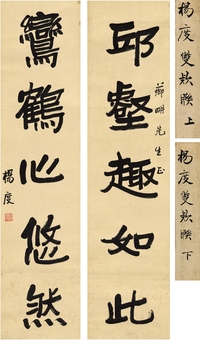 邱壑趣如此
薌畊先生正
鸞鶴心悠然
楊度
楊度雙欵聯 上
楊度雙欵聯 下